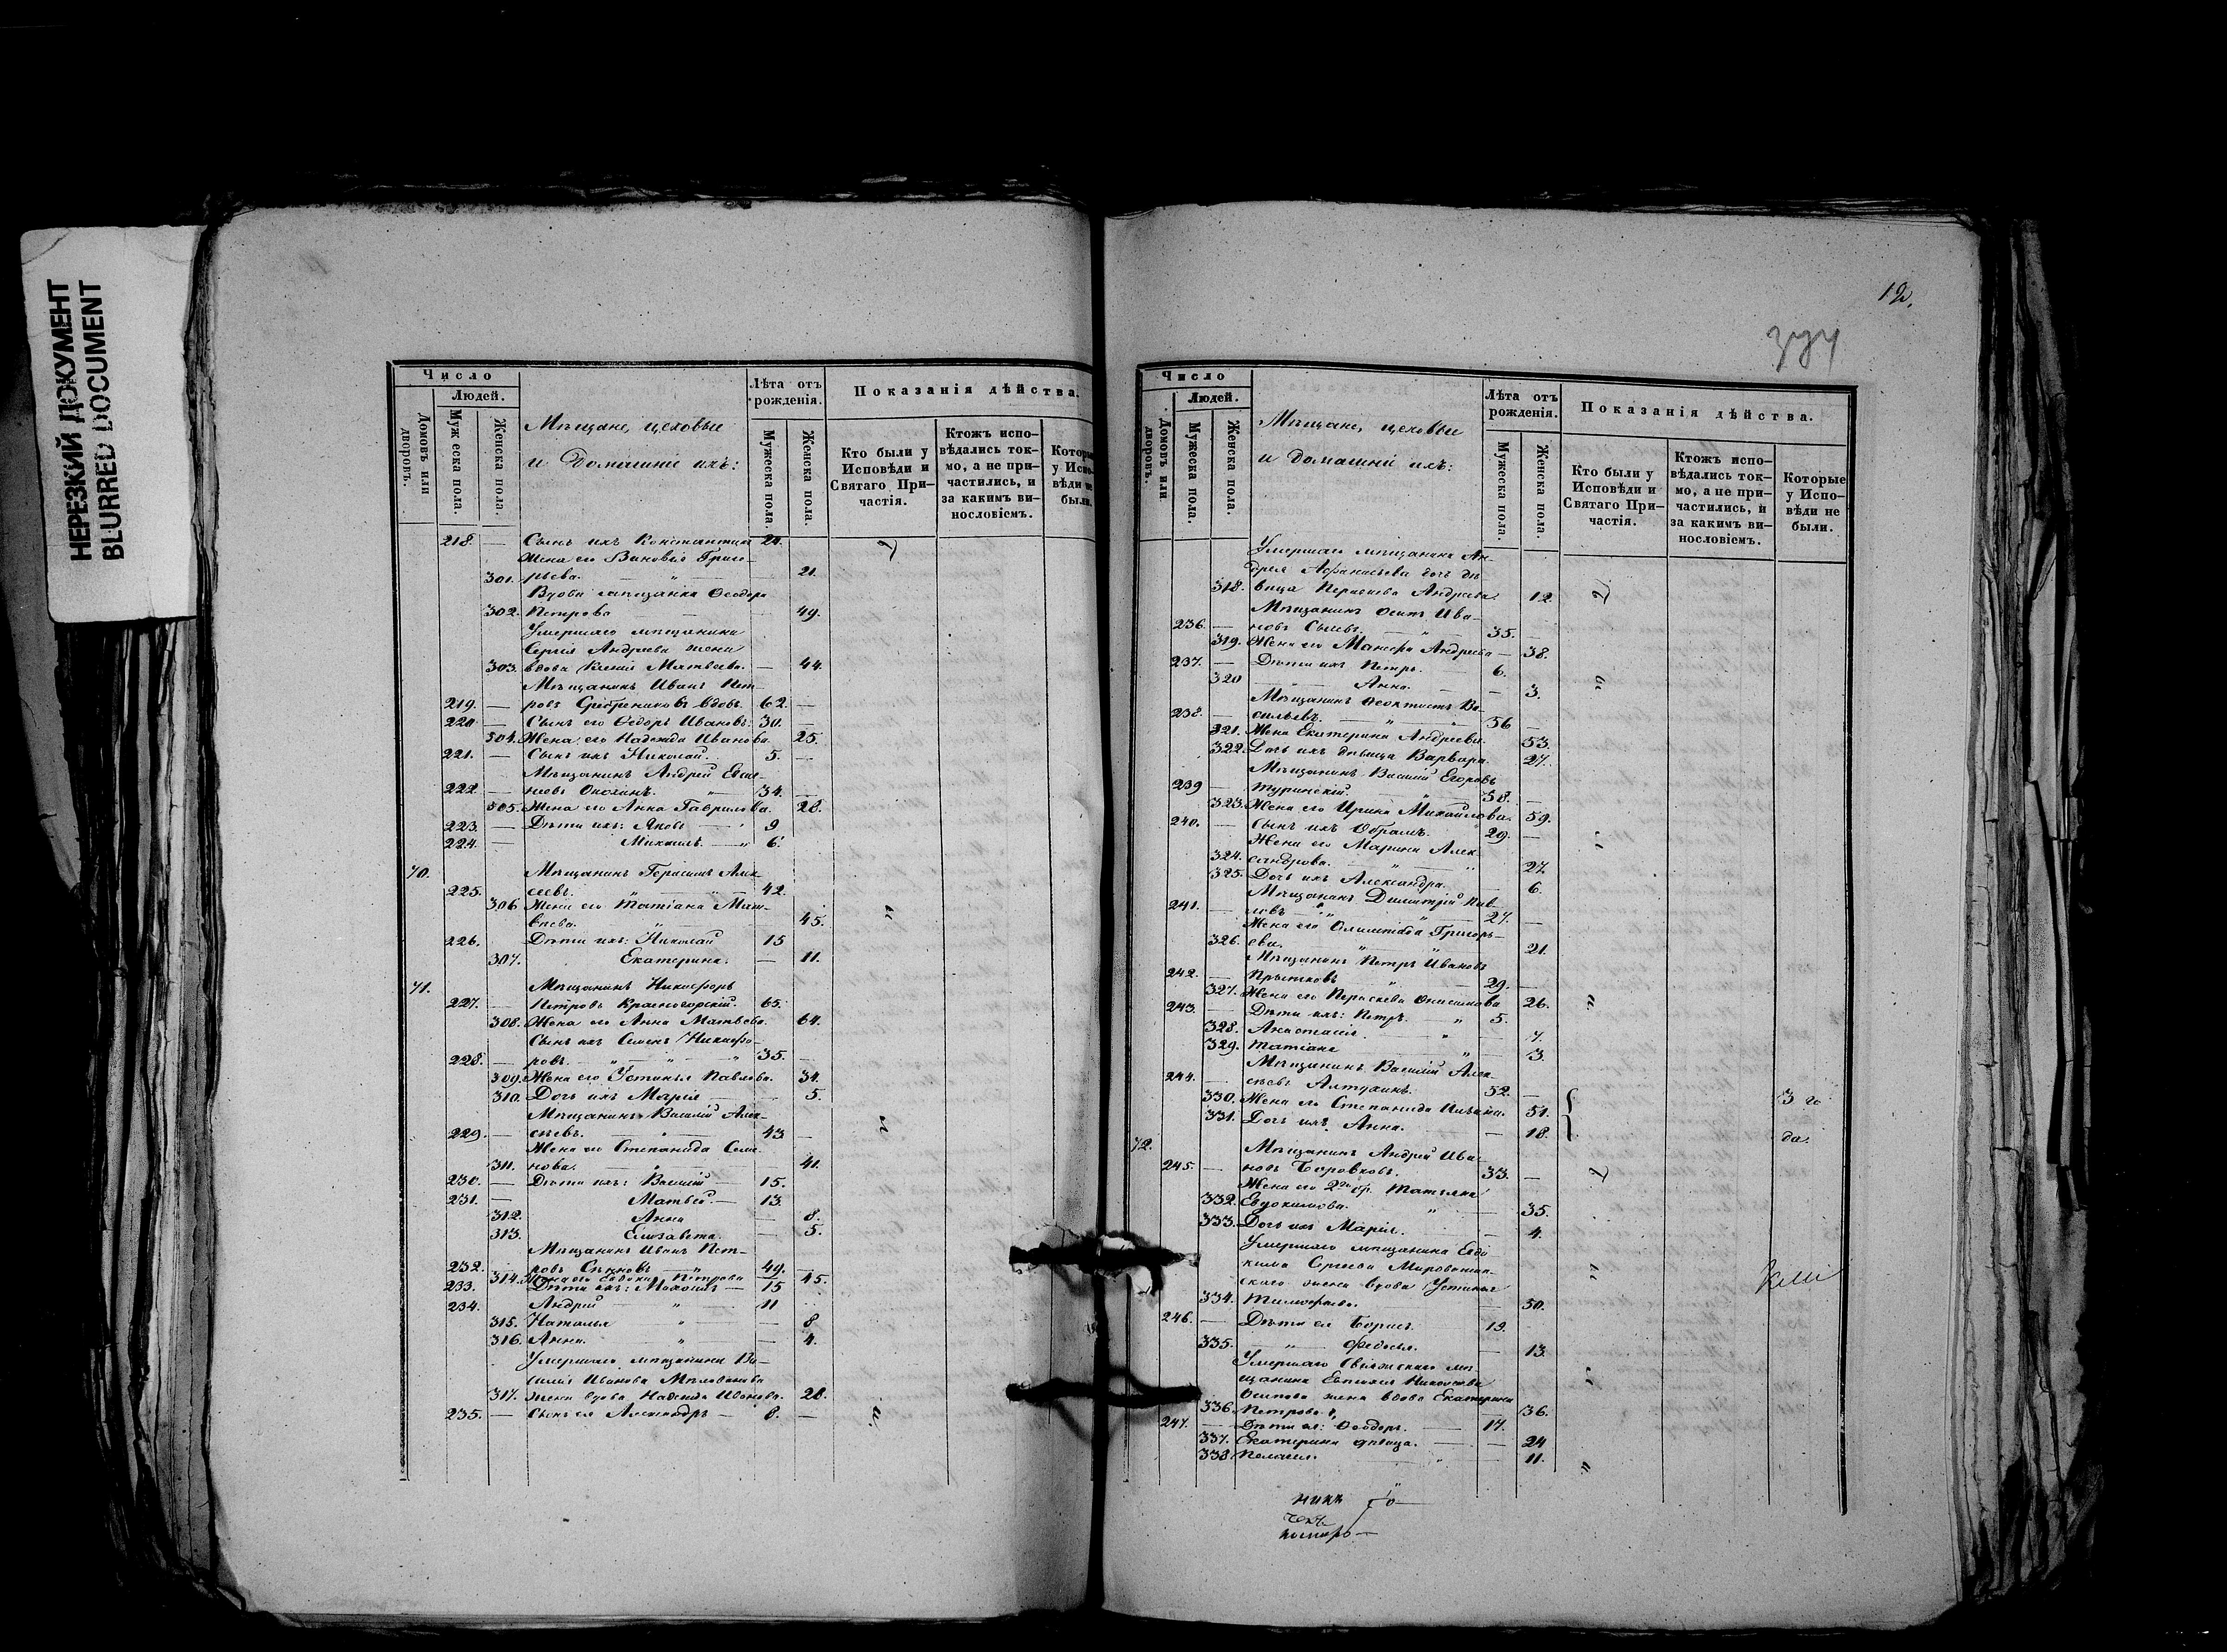 НЕРЕЗКИЙ ДОКУМЕНТ
BLURRED DOCUMENT
Число
Людей.
Домовъ или дворовъ.
Мужеска пола.
Женска пола.
Мѣщане, цеховые
и домашніе ихъ:
Лѣта отъ рожденія.
Мужеска пола.
Женска пола.
Показанія дѣйства.
Кто были у Исповѣди и Святаго Причастія.
Ктожъ исповѣдались токмо, а не причастились, и за какимъ винословіемъ.
Которые у Исповѣди не были.
218. — Сынъ ихъ Константинъ 21.
Жена его Зиновія Григо-
301. рьева. — " — 21.
Вдова мѣщанка Ѳеодора
302. Петрова — 49.
Умершаго мѣщанина
Сергія Андреева жена
303. вдова Ксенія Матвеева. — 44.
Мѣщанинъ Иванъ Пет-
219. — ровъ Сребрениковъ вдовъ. 62. —
220 — Сынъ его Ѳедоръ Ивановъ. 30. —
304. Жена его Надежда Иванова. 25.
221. — Сынъ ихъ Николай. 5. —
Мѣщанинъ Андрей
222 — 34. —
305. Жена его Анна Гаврилова. 28.
223. — Дѣти ихъ: Яковъ — 9
224. — Михаилъ. — " 6.
70. Мѣщанинъ Герасимъ Алек-
225. сеевъ. " — " — 42.
306 Жена его Татіана Мат-
веева. " — 45.
226. Дѣти ихъ: Николай 15
307. Екатерина. — 11.
71. Мѣщанинъ Никифоръ
227. — Петровъ Красногорскій. 65.
308. Жена его Анна Матвеева. 64.
Сынъ ихъ Семенъ Никифо-
228. — ровъ. " — " — " 35. —
309. Жена его Устинья Павлова. 34.
310. Дочь ихъ Марія — 5.
Мѣщанинъ Василій Алек-
229. — сѣевъ. — " — 43 —
Жена его Степанида Семе-
311. нова. — " — 41.
230. — Дѣти ихъ: Василій — 15.
231. — Матвей. — 13.
312. Анна — 8.
313. Елизавета. — 5.
Мѣщанинъ Иванъ Пет-
232. ровъ — " 49. —
314. Жена его Евдокія Петрова — 45.
233. Дѣти ихъ: — 15
234. Андрей — " — 11
315. Наталья " — 8
316. Анна. " — 4.
Умершаго мѣщанина Ва-
силія Иванова
317. жена вдова Надежда Иванова. 28.
235. — Сынъ ея Александръ — 8. —
12.
Число
Людей.
Домовъ или дворовъ.
Мужеска пола.
Женска пола.
Мѣщане, цеховые
и домашніе ихъ:
Лѣта отъ рожденія.
Мужеска пола.
Женска пола.
Показанія дѣйства.
Кто были у Исповѣди и Святаго Причастія.
Ктожъ исповѣдались токмо, а не причастились, и за какимъ винословіемъ.
Которые у Исповѣди не были.
Умершаго мѣщанина Ан-
дрея Афанасьева дочь дѣ-
318. вица Андреева 12.
Мѣщанинъ Осипъ Ива-
236. — новъ 35. —
319. Жена его Андреева — 38.
237. — Дѣти ихъ Петръ. 6.
320 Анна. — 3.
Мѣщанинъ Ѳеоктистъ Ва-
238. — сильевъ. " 56 —
321. Жена Екатерина Андреева. 53.
322. Дочь ихъ дѣвица Варвара. 27.
Мѣщанинъ Василій Егоровъ
239 — Туринскій. 58. —
323. Жена его Ирина Михайлова. 59.
240. — Сынъ ихъ 29. —
Жена его Марина Алек-
324. сандрова. " 27.
325. Дочь ихъ Александра. 6.
Мѣщанинъ Димитрій Пав-
241. — ловъ — " 27. —
Жена его Григорь-
326. ева. " 21.
Мѣщанинъ Петръ Ивановъ
242. — 29. —
327. Жена его Параскева 26.
243. — Дѣти ихъ: Петръ. " 5.
328. Анастасія. " 7.
329. Татіана " — 3.
Мѣщанинъ Василій Алек-
244. — сѣевъ Алтухинъ. 52. —
330. Жена его Степанида 51.
331. Дочь ихъ Анна. — 18.
72. Мѣщанинъ Андрей Ива-
245. — новъ Боровковъ. 33. —
Жена его Татьяна
332. Евдокимова. " — 35.
333. Дочь ихъ Марія. — 4.
Умершаго мѣщанина Евдо-
кима Сергеева
жена вдова Устинья
334. Тимофеева. — 50.
246. — Дѣти ея Борисъ. 19.
335. " Федосья. — 13.
Умершаго мѣ-
щанина
Осипова жена вдова Екатерина
336. Петрова 36.
247. — Дѣти ея: Ѳеодоръ. 17.
337. Екатерина дѣвица. — 24
338. Пелагея. " — 11.